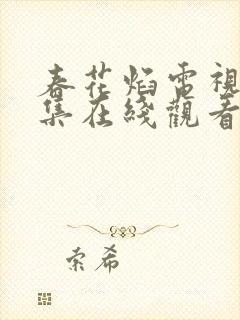 春花焰電視
集在綫觀看
索希